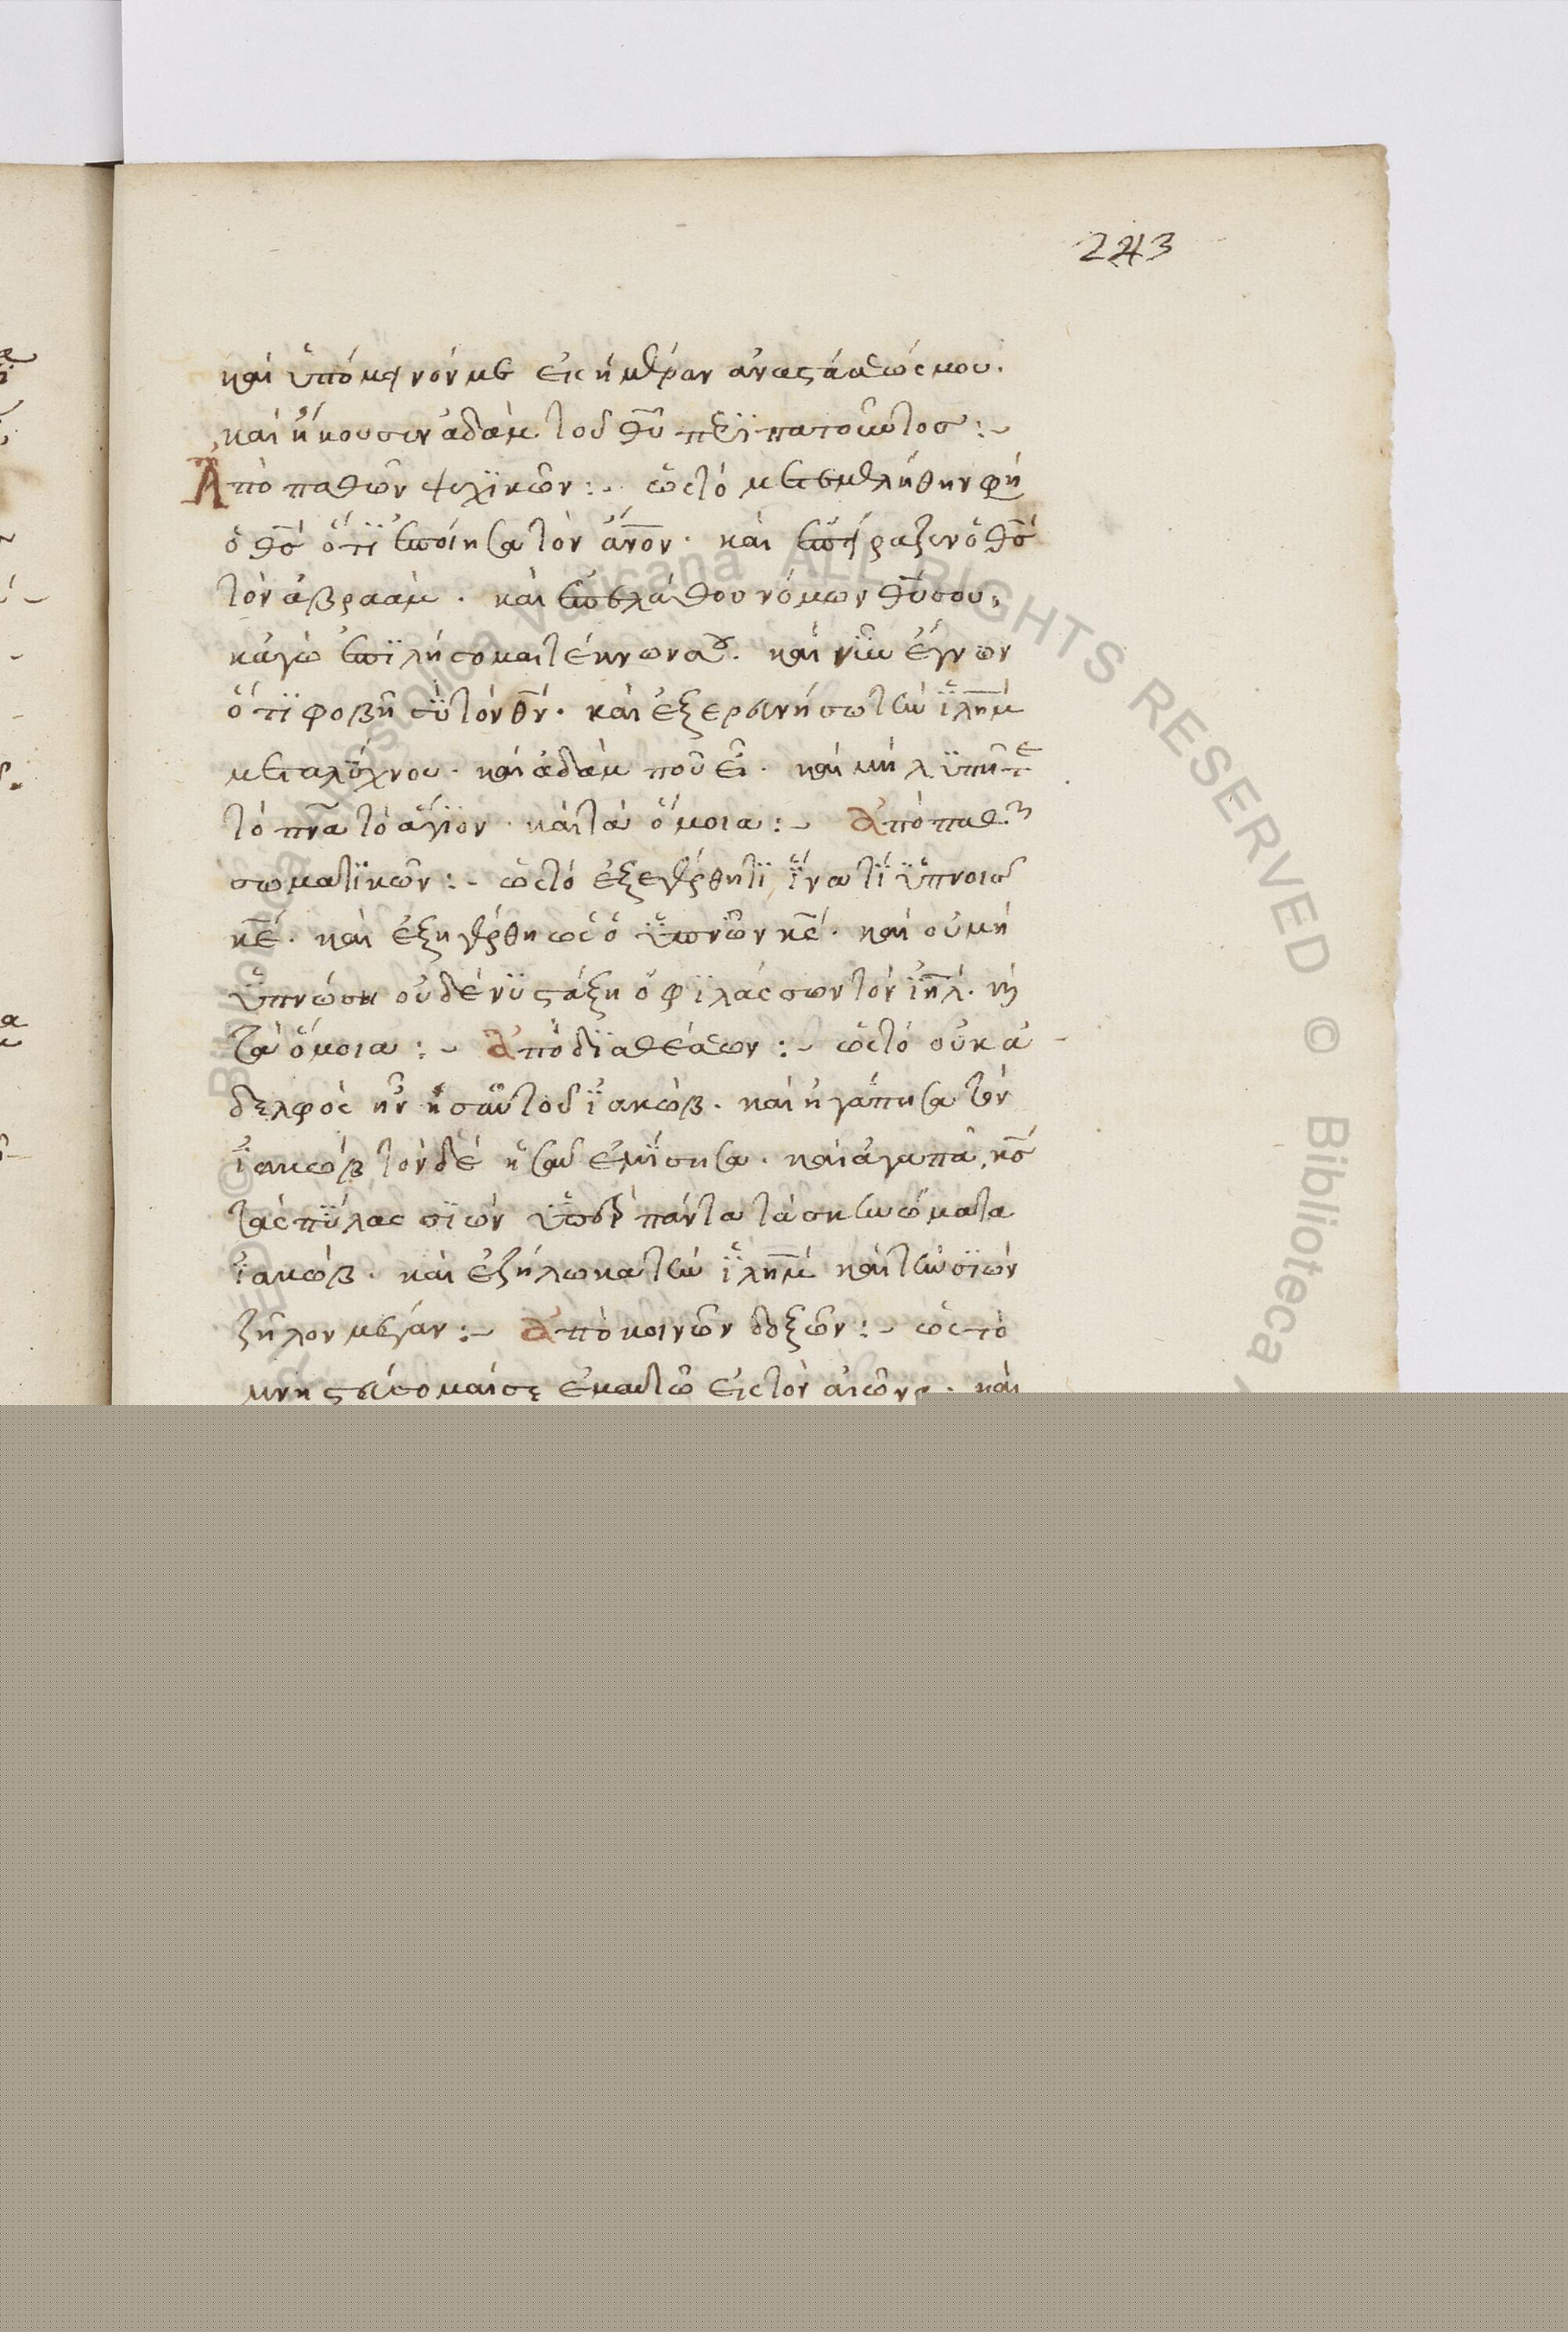 243
καὶ ὑπόμεινόν με εἰς ἡμέραν ἀναστάσεώς μου.
καὶ ἤκουσεν ἀδὰμ τοῦ θ̅υ̅ περϊπατοῦντος :~
Ἀπὸ παθῶν ψυχϊκῶν :~ ὡς τὸ μετεμελήθην φη
ὁ θ̅ς̅ ὅτϊ ἐποίησα τὸν ἄν̅ο̅ν̅. καὶ ἐπείραξεν ὁ θ̅ς̅
τὸν ἀβραάμ. καὶ ἐπελάθου νόμων θ̅υ̅ σου,
κἀγὼ ἐπϊλήσομαι τέκνων σου. καὶ νῦν ἔγνων
ὅτϊ φοβῆ σὺ τὸν θ̅ν̅. καὶ ἐξερευνήσω τὴν ϊ̅λ̅η̅μ̅
μετα λύχνου. καὶ ἀδὰμ ποῦ εἶ. καὶ μὴ λϋπῆτε
τὸ π̅ν̅α̅ τὸ ἅγϊον. καὶ τὰ ὅμοια :~ Ἀπὸ παθῶν
σωματϊκῶν :~ ὡς τὸ ἐξεγέρθητϊ ἵνα τί ὑπνοῖς
κ̅ε̅. καὶ ἐξηγέρθη ὡς ὁ ὑπνῶν κ̅ς̅. καὶ οὐ μὴ
ὑπνώση οὐδὲ νϋστάξη ὁ φϊλάσσων τὸν ϊ̅η̅λ̅. καὶ
τὰ ὅμοια :~ Ἀπὸ δϊαθέσεων :~ ὡς τὸ οὐκ ἀ
δελφὸς ἦν ἠσαῦ τοῦ ϊακώβ. καὶ ἠγάπησα τὸν
ϊακὼβ τὸν δὲ ἠσαῦ ἐμίσησα. καὶ ἀγαπᾶ κ̅ς̅
τὰς πύλας σϊὼν ὑπὲρ πάντα τὰ σκηνώματα
ϊακώβ. καὶ ἐζήλωκα τὴν ϊ̅λ̅η̅μ̅ καὶ τὴν σϊὼν
ζῆλον μέγαν :~ Ἀπὸ κοινῶν δοξῶν :~ ὡς τὸ
μνηστεύσομαί σε ἐμαυτῶ εἰς τὸν αἰῶνα. καὶ